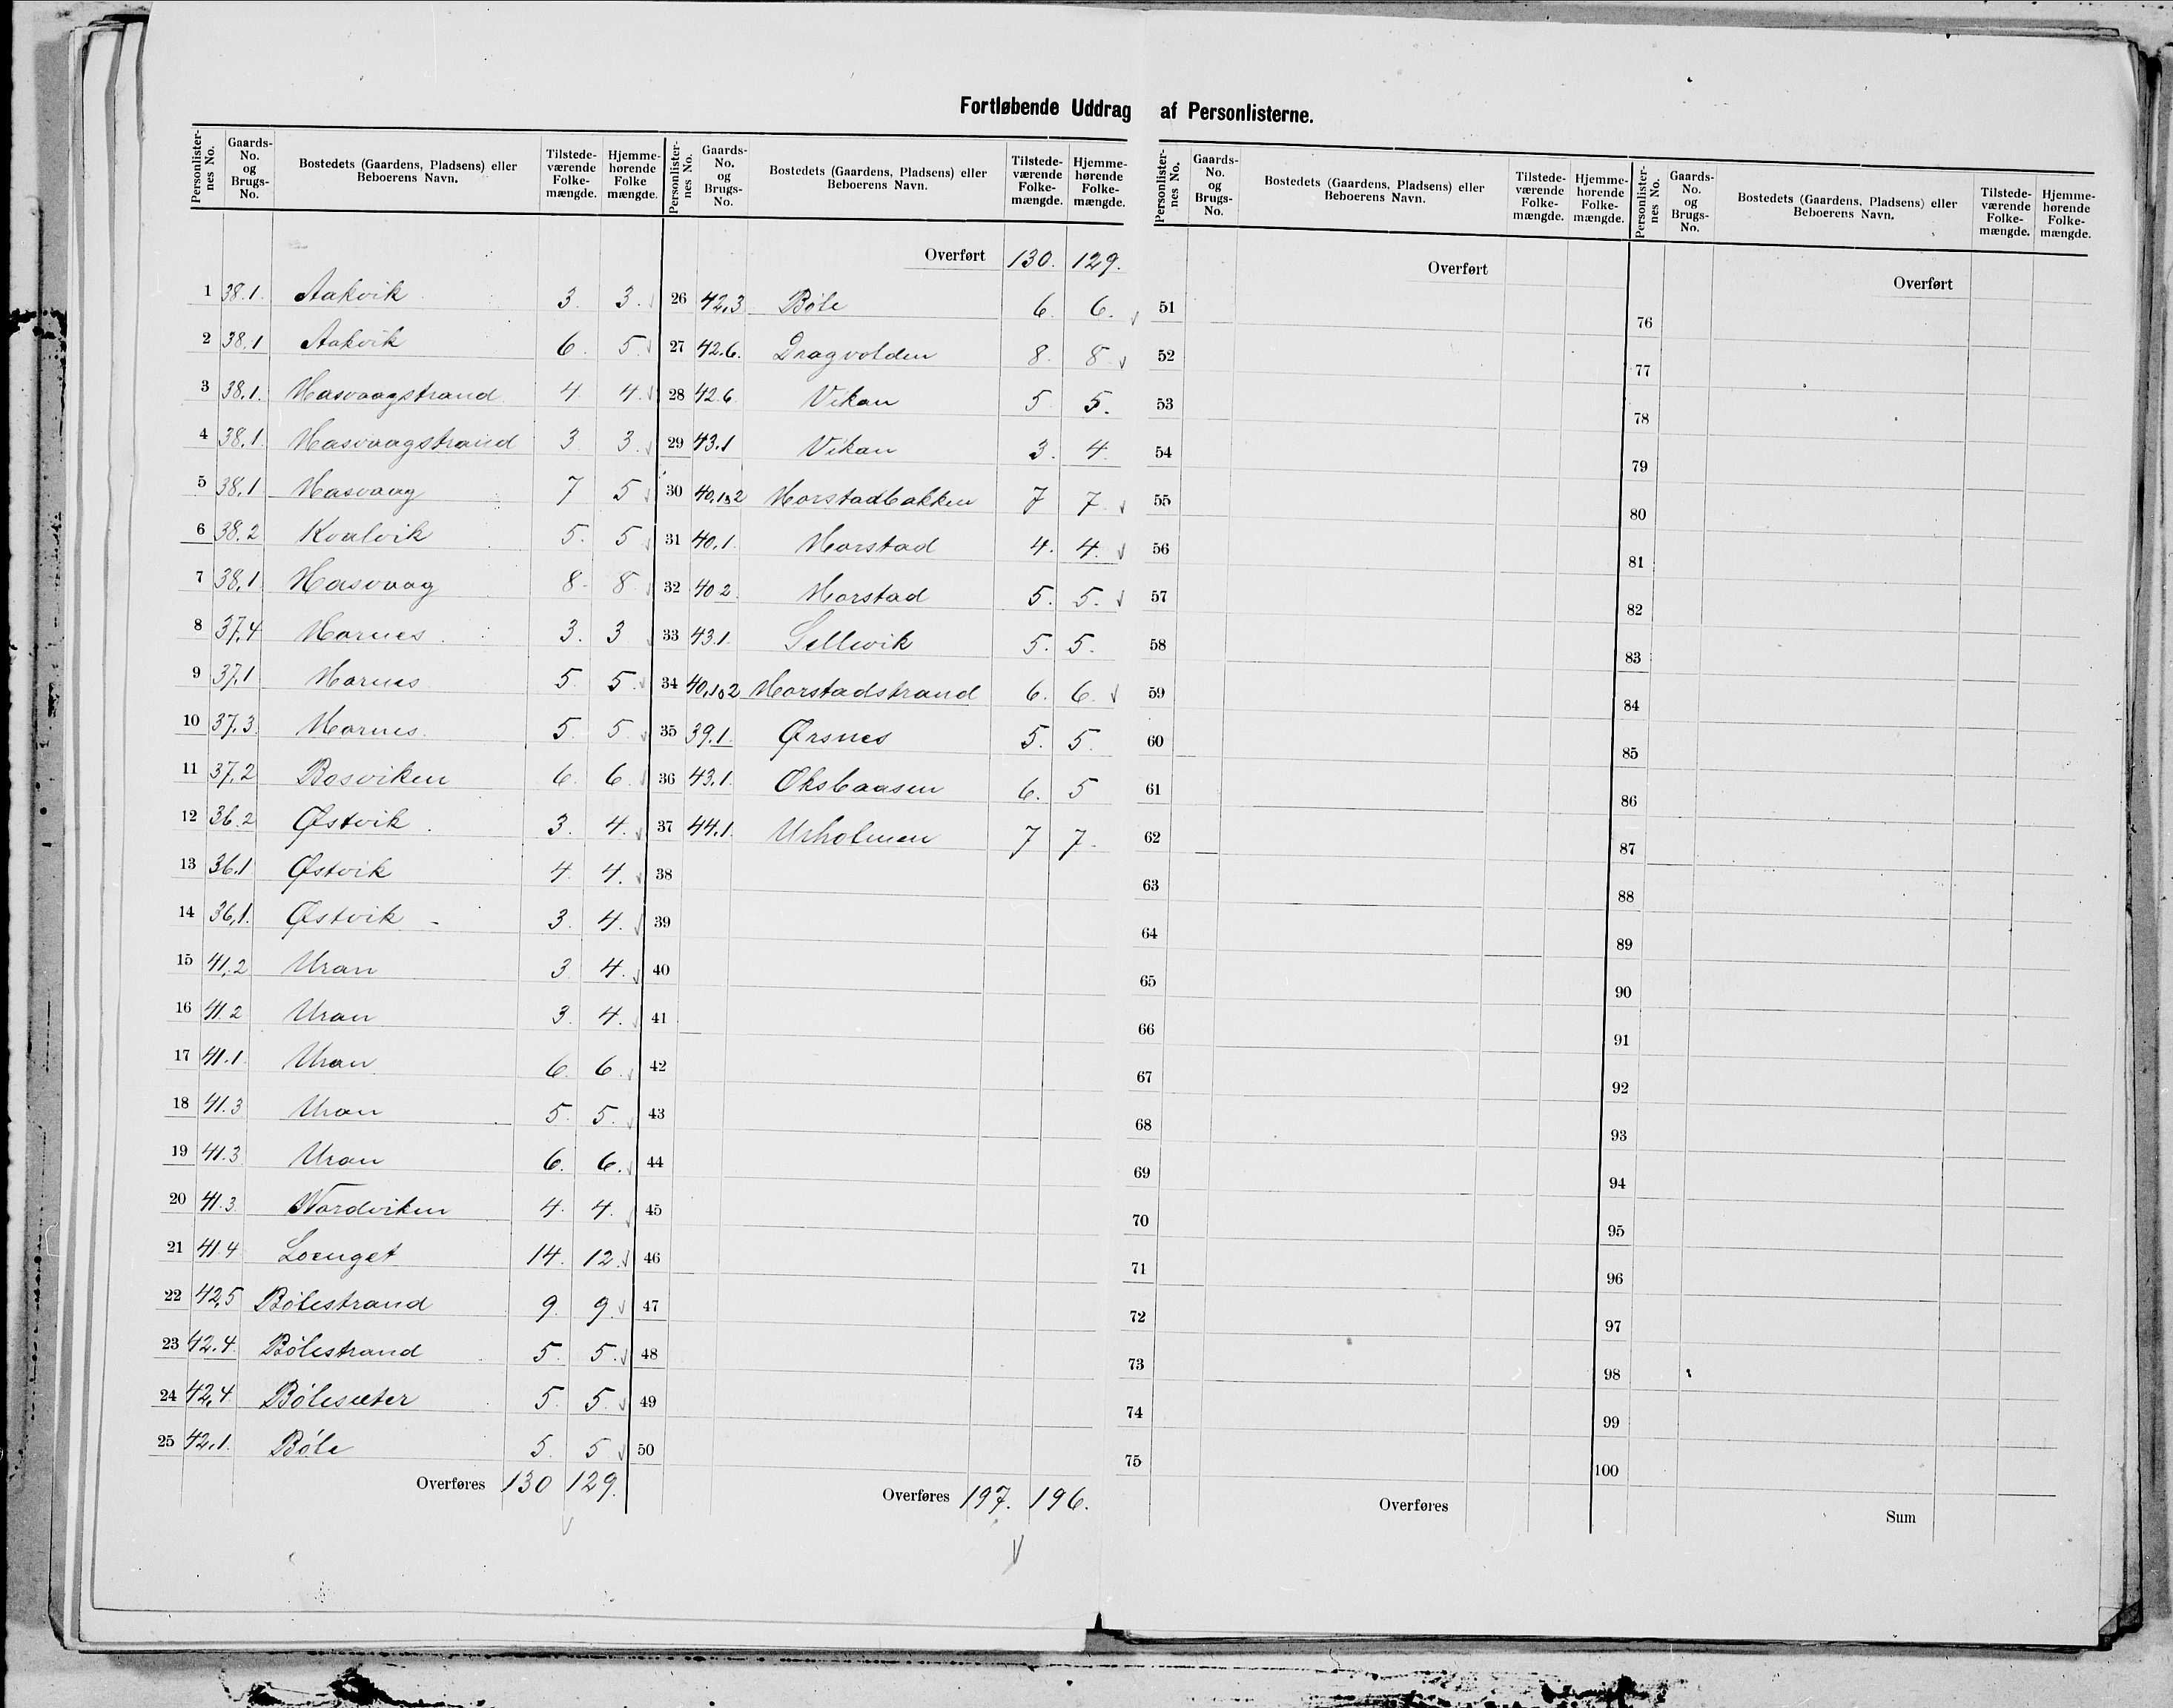 Fortløbende Uddrag af Personlisterne.
Personlisternes No. Gaards-No. og Brugs-No. Bostedets (Gaardens, Pladsens) eller Beboerens Navn. Tilstedeværende Folkemængde. Hjemmehørende Folkemængde.
1 38.1. Aakvik 3. 3.
2 38.1 Aakvik 6. 5
3 38.1. Hasvaagstrand 4 4.
4 38.1. Hasvaagstrand 3 3.
5 38.1 Hasvaag 7 5
6 38.2 Kvalvik 5. 5
7 38.1 Hasvaag 8. 8
8 37.4 Hornes 3. 3
9 37.1 Hornes 5. 5.
10 37.3. Hornes. 5. 5.
11 37.2 Bosviken 6. 6.
12 36.2 Østvik 3. 4.
13 36.1 Østvik 4. 4.
14 36.1. Østvik 3. 4.
15 41.2 Uran 3. 4.
16 41.2 Uran 3. 4.
17 41.1. Uran 6. 6.
18 41.3 Uran 5. 5.
19 41.3 Uran 6. 6.
20 41.3 Nordviken 4. 4.
21 41.4 Loenget 14. 12.
22 42.5 Bølestrand 9. 9.
23 42.4 Bølestrand 5. 5.
24 42.4. Bølesæter 5. 5.
25 42.1. Bøle 5. 5
Overføres 130 129.
Personlisternes No. Gaards-No. og Brugs-No. Bostedets (Gaardens, Pladsens) eller Beboerens Navn. Tilstedeværende Folkemængde. Hjemmehørende Folkemængde.
Overført 130. 129.
26 42.3 Bøle 6. 6.
27 42.6. Dragvolden 8. 8
28 42.6 Vikan 5 5.
29 43.1 Vikan 3. 4.
30 40.1&2 Horstadbakken 7 7
31 40.1. Horstad 4. 4.
32 40 2. Horstad 5. 5.
33 43.1. Sellevik 5. 5.
34 40.1&2 Horstadstrand 6. 6.
35 39.1. Ørsnes 5. 5.
36 43.1. Oksbaasen 6. 5
37 44.1. Urholmen 7 7.
38
39
40
41
42
43
44
45
46
47
48
49
50
Overføres 197. 196.
Personlisternes No. Gaards-No. og Brugs-No. Bostedets (Gaardens, Pladsens) eller Beboerens Navn. Tilstedeværende Folkemængde. Hjemmehørende Folkemængde.
Overført
51
52
53
54
55
56
57
58
59
60
61
62
63
64
65
66
67
68
69
70
71
72
73
74
75
Overføres
Personlisternes No. Gaards-No. og Brugs-No. Bostedets (Gaardens, Pladsens) eller Beboerens Navn. Tilstedeværende Folkemængde. Hjemmehørende Folkemængde.
Overført
76
77
78
79
80
81
82
83
84
85
86
87
88
89
90
91
92
93
94
95
96
97
98
99
100
Sum